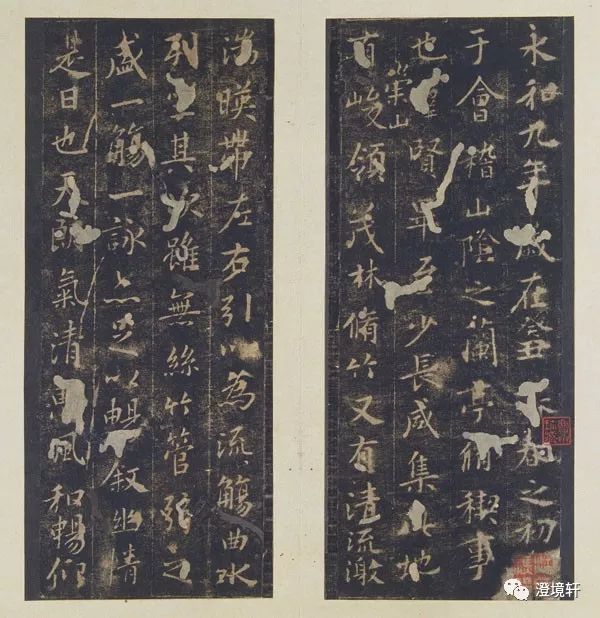 永和九年歲在癸丑暮春之初
于會稽山陰之蘭亭脩稧事
也群賢畢至少長咸集此地
崇山
有峻領茂林脩竹又有清流激
湍暎帶左右引以為流觴曲水
列坐其次雖無絲竹管弦之
盛一觴一詠亦足以暢叙幽情
是日也天朗氣清惠風和暢仰
澄境轩